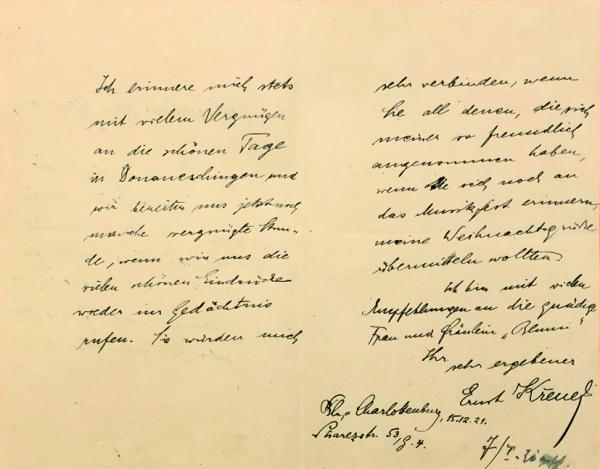 Ich erinnere mich stets
mit vielem Vergnügen
an die schönen Tage
in Donaueschingen und
wir bereiten uns jetzt noch
manche vergnügte Stun-
de, wenn wir uns die
vielen schönen Eindrücke
wieder ins Gedächtnis
rufen. Sie würden mich
sehr verbinden, wenn
Sie all denen, die sich
meiner so freundlich
angenommen haben,
wenn sie sich noch an
das Musikfest erinnern,
meine Weihnachtsgrüße
übermitteln wollten.
Ich bin mit vielen
Empfehlungen an die gnädige
Frau und Fräulein
Ihr
sehr ergebener
Ernst Krenek
Charlottenburg, 15.12.21.
53, 4.